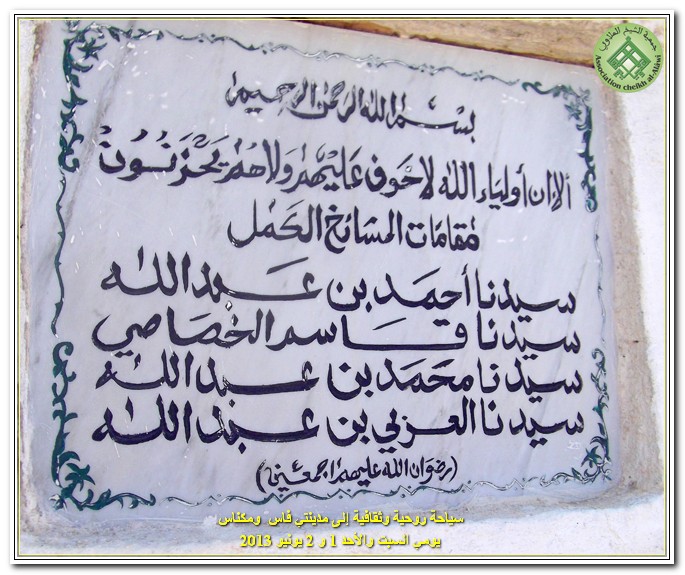 جمعية الشيخ العلاوي
Association cheikh al-Alawi
بسم الله الرحمن الرحيم
ألا ان أولياء الله لا خوف عليهم ولا هم يحزنون
مقامات المشائخ الكمل
سيدنا أحمد بن عبد الله
سيدنا قاسم الخصاصي
سيدنا محمد بن عبد الله
سيدنا العربي بن عبد الله
(رضوان الله عليهم اجمعين)
سياحة روحية وثقافية إلى مدينتي فاس ومكناس
يومي السبت والأحد 1 و 2 يونيو 2013